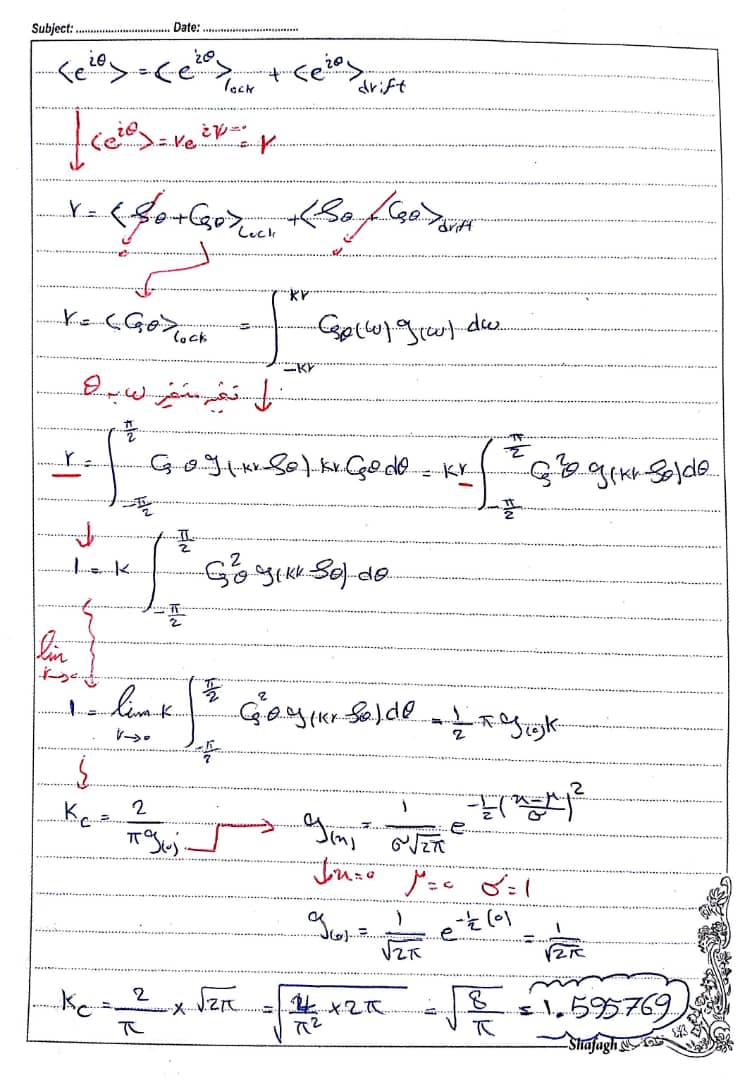 Subject: ........................ Date: ........................
<e^{iθ}> = <e^{iθ}>_{lock} + <e^{iθ}>_{drift}
<e^{iθ}> = re^{iψ=0} = r
r = <Sθ + Cosθ>_{Lock} + <Sθ + Cosθ>_{drift}
0 0
r = <Cosθ>_{lock} = ∫_{-kr}^{kr} Cosθ(ω) g(ω) dω
↓ تغییر متغیر ω به θ
r = ∫_{-π/2}^{π/2} Cosθ g(kr Sθ) kr Cosθ dθ = kr ∫_{-π/2}^{π/2} Cos²θ g(kr Sθ) dθ
1 = k ∫_{-π/2}^{π/2} Cos²θ g(kr Sθ) dθ
lim r→0
1 = lim_{r→0} k ∫_{-π/2}^{π/2} Cos²θ g(kr Sθ) dθ = 1/2 π g(0) k
K_c = 2/(π g(0)) → g(x) = 1/(σ√2π) e^{-1/2 ((x-μ)/σ)^2}
↓ x=0 μ=0 σ=1
g(0) = 1/√2π e^{-1/2 (0)} = 1/√2π
K_c = 2/π × √2π = √(4/π² × 2π) = √(8/π) = 1.595769
Shafagh